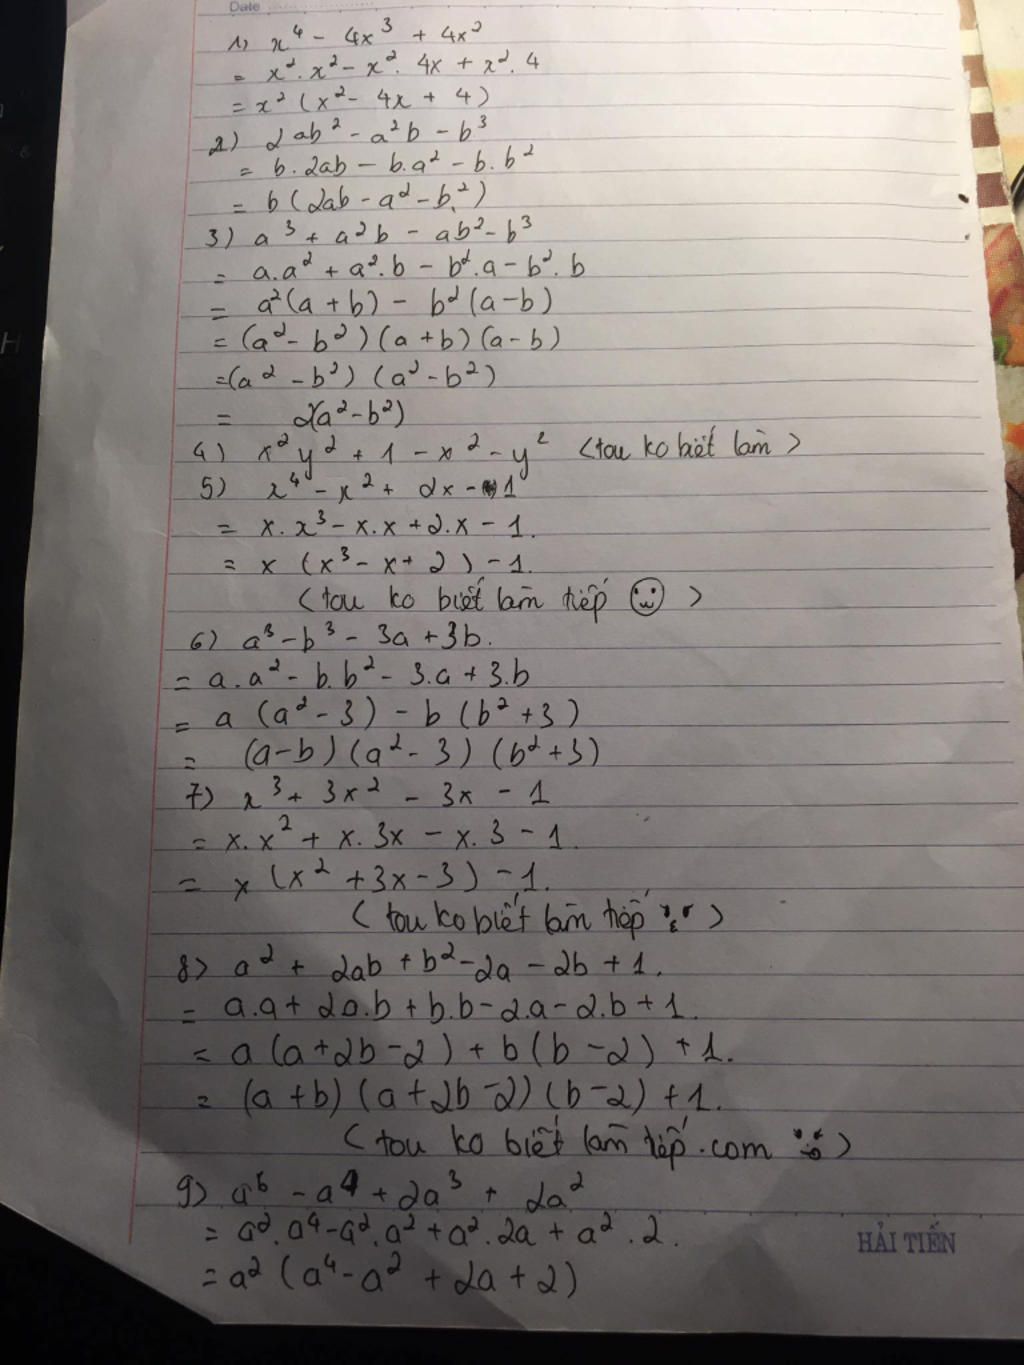 Date
1) x⁴ - 4x³ + 4x²
= x². x² - x². 4x + x². 4
= x² (x² - 4x + 4)
2) 2ab² - a²b - b³
= b. 2ab - b.a² - b. b²
= b (2ab - a² - b²)
3) a³ + a²b - ab² - b³
= a.a² + a².b - b².a - b². b
= a²(a + b) - b² (a - b)
= (a² - b²) (a + b) (a - b)
= (a² - b²) (a² - b²)
= 2(a² - b²)
4) x²y² + 1 - x² - y² (tau ko biết làm)
5) x⁴ - x² + 2x - 1
= x. x³ - x.x + 2.x - 1.
= x (x³ - x + 2) - 1.
(tau ko biết làm tiếp)
6) a³ - b³ - 3a + 3b.
= a.a² - b.b² - 3.a + 3.b
= a (a² - 3) - b (b² + 3)
= (a - b) (a² - 3) (b² + 3)
7) x³ + 3x² - 3x - 1
= x. x² + x. 3x - x. 3 - 1.
= x (x² + 3x - 3) - 1.
(tau ko biết làm tiếp)
8) a² + 2ab + b² - 2a - 2b + 1.
= a.a + 2a.b + b.b - 2.a - 2.b + 1.
= a (a + 2b - 2) + b (b - 2) + 1.
= (a + b) (a + 2b - 2) (b - 2) + 1.
(tau ko biết làm tiếp.com)
9) a⁶ - a⁴ + 2a³ + 2a²
= a². a⁴ - a². a² + a². 2a + a². 2.
HẢI TIẾN
= a² (a⁴ - a² + 2a + 2)